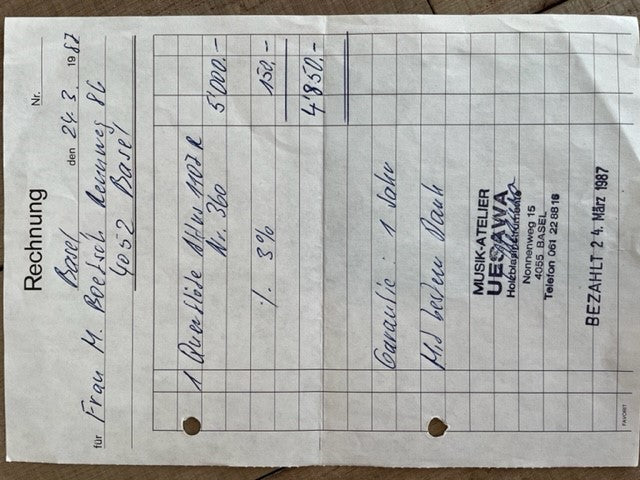 Rechnung
Nr.
Basel den 24. 3. 1987
für Frau M. Boetsch Rennweg 86
4052 Basel
1 Querflöte Altus 1107 R 5'000.-
Nr. 360
./. 3% 150.-
4'850.-
Garantie : 1 Jahr
Mit bestem Dank
MUSIK-ATELIER
UESAWA
Holzblasinstrumente
Nonnenweg 15
4055 BASEL
Telefon 061 22 88 16
BEZAHLT 24. März 1987
FAVORIT